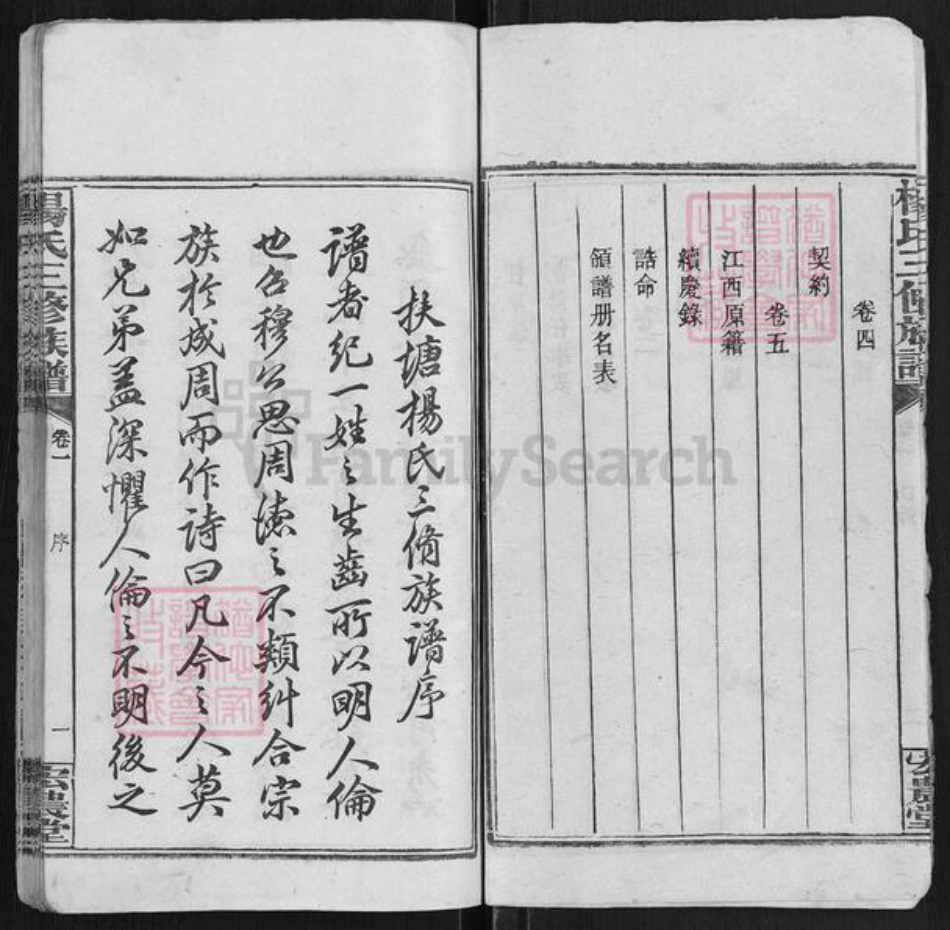 楊氏三修族譜
卷四
契約
卷五
江西原籍
續慶錄
誥命
領譜册名表
宏農堂
扶塘楊氏三脩族譜序
譜者紀一姓之生齒所以明人倫
也召穆公思周德之不類糾合宗
族於成周而作詩曰凡今之人莫
如兄弟盖深懼人倫之不明後之
楊氏三修族譜
卷一
序
一
宏農堂
FamilySearch